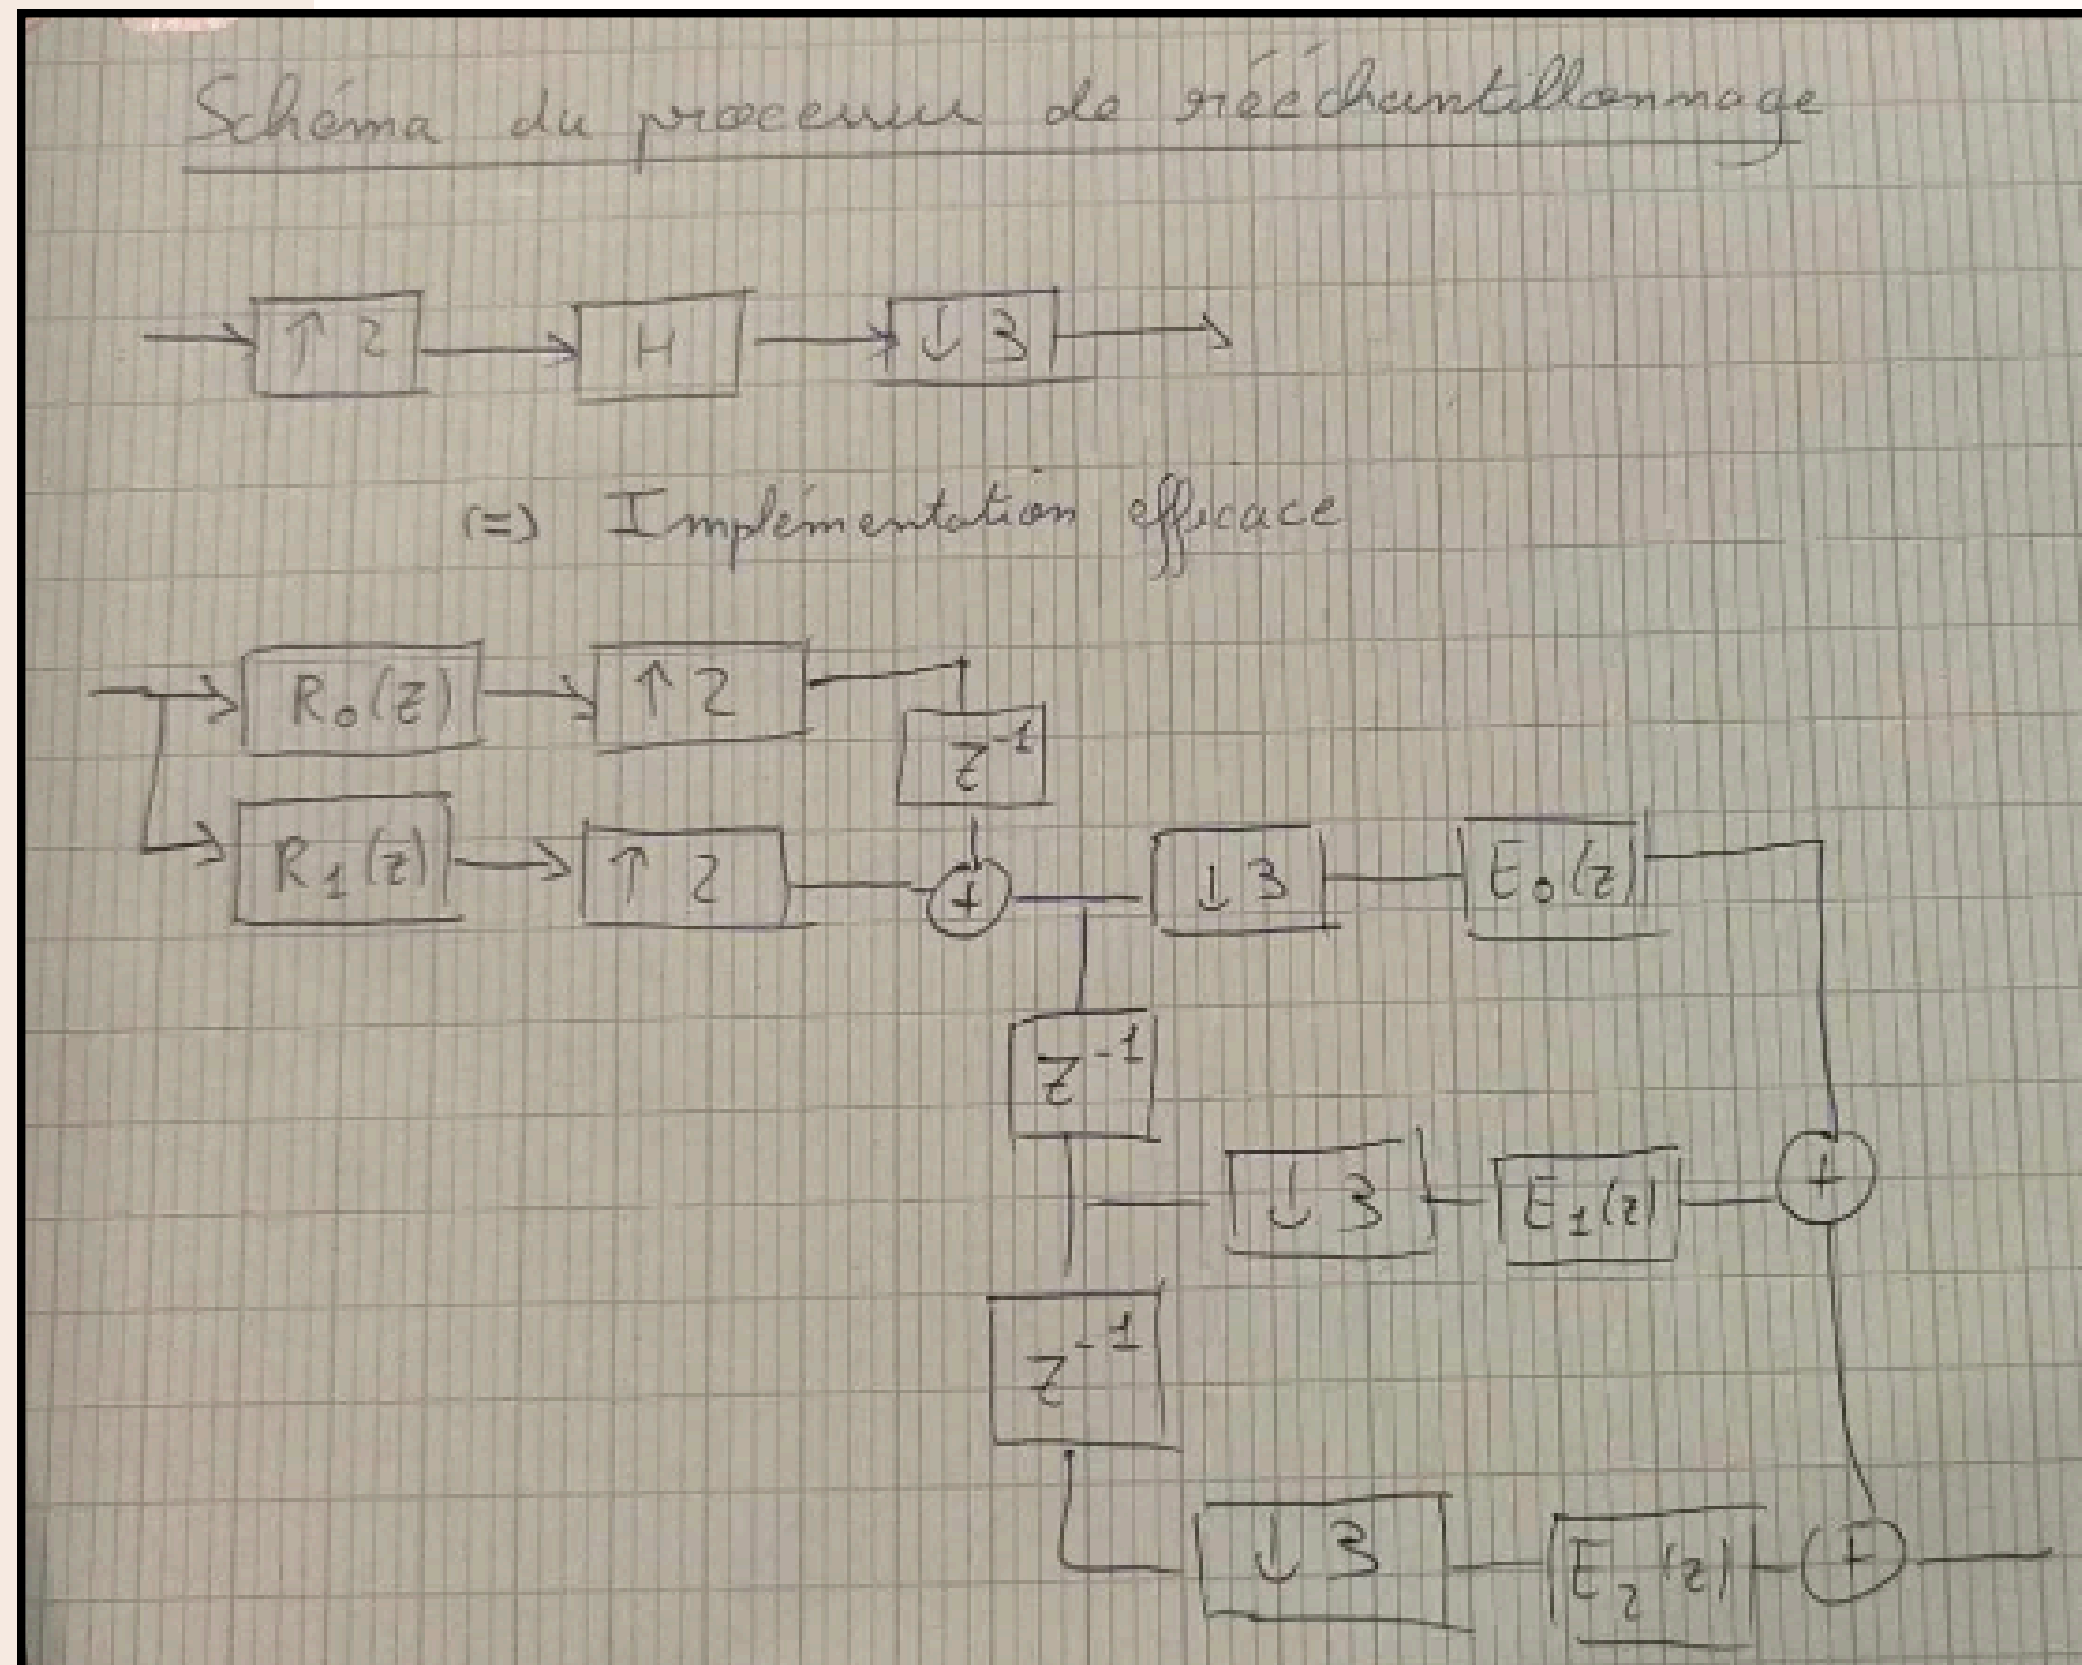 Schéma du processus de rééchantillonnage
↑ 2 H ↓ 3
(=) Implémentation efficace
R₀(z) ↑ 2
z⁻¹
R₁(z) ↑ 2 + ↓ 3 E₀(z)
z⁻¹
↓ 3 E₁(z) +
z⁻¹
↓ 3 E₂(z) +